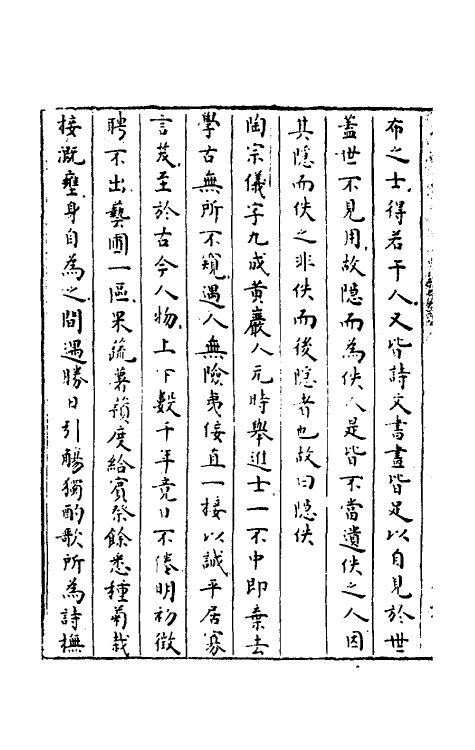 布之士得若干人又皆詩文書畫皆足以自見於世
蓋世不見用故隱而為佚人是皆不當遺佚之人因
其隱而佚之非佚而後隱者也故曰隱佚
陶宗儀字九成黃巖人元時舉進士一不中即棄去
學古無所不窺遇人無險夷佞直一接以誠平居寡
言芨至於古今人物上下數千年竟日不倦明初徵
聘不出藝圃一區果蔬薯蕷度給賓祭餘悉種菊栽
接溉壅身自為之間遇勝日引觴獨酌歌所為詩撫